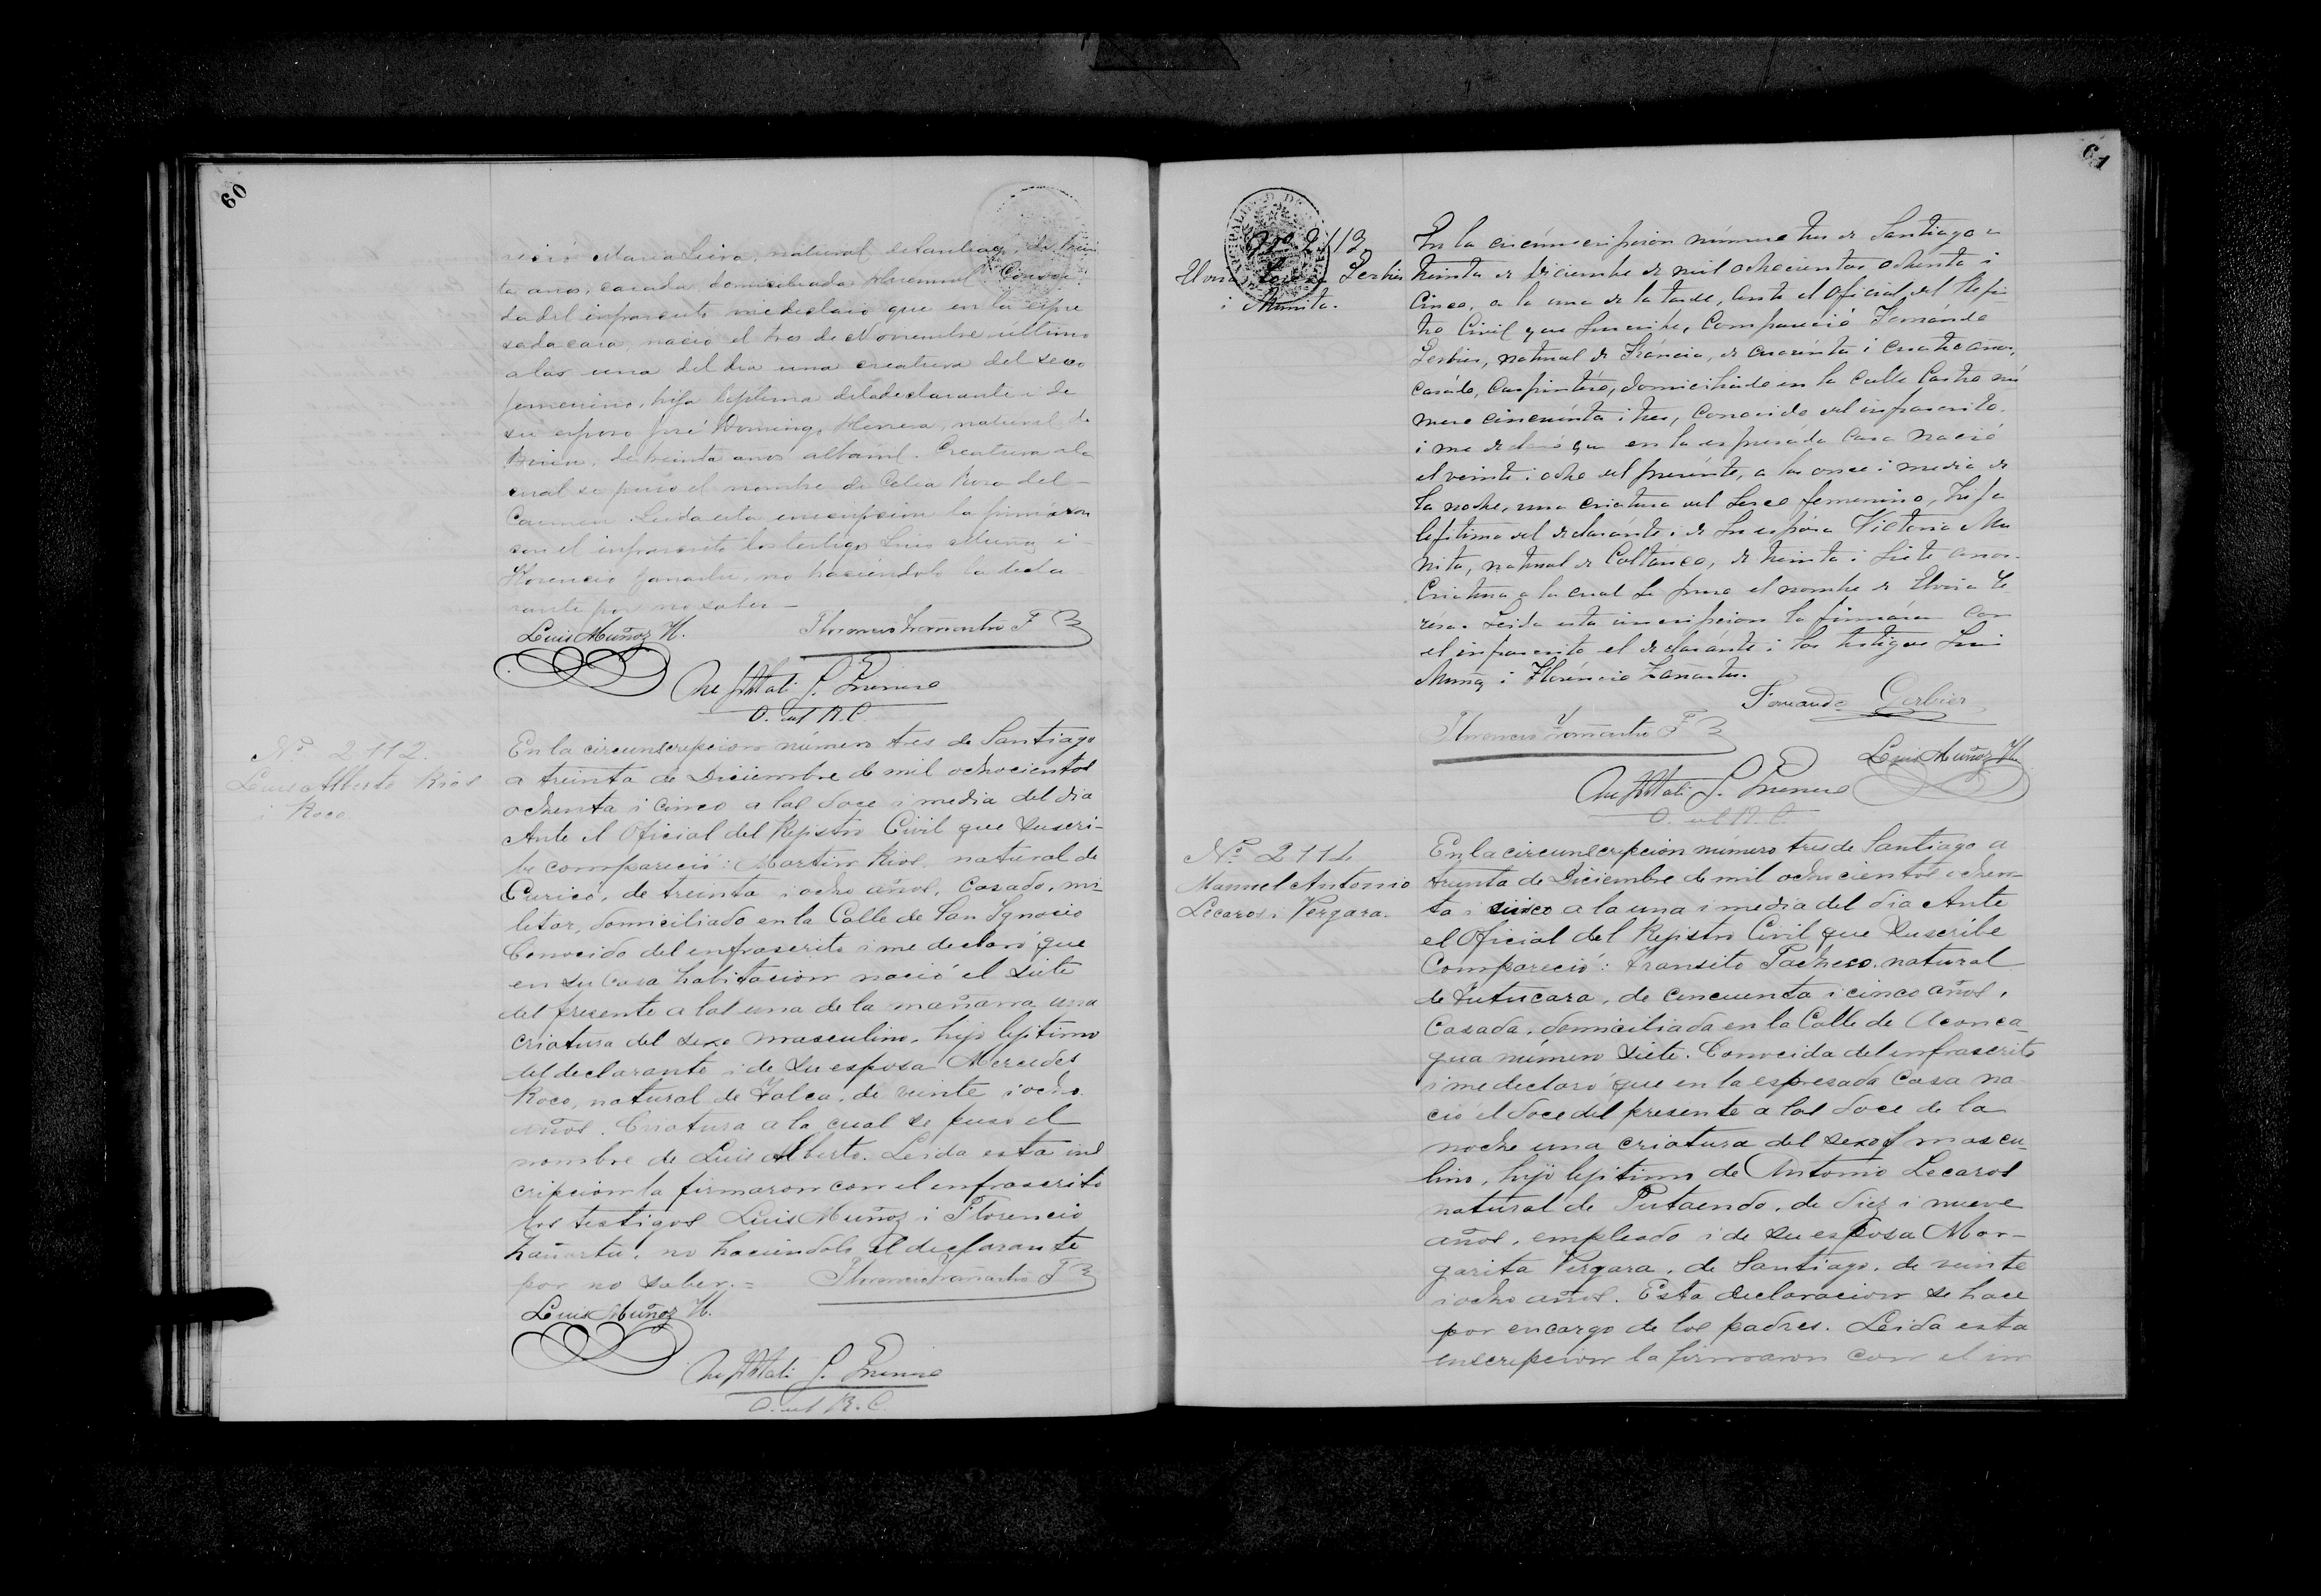 60
reció María Leiva, natural de Santiago, de trein
ta años, casada, domiciliada Conoci
da del infrascrito i me declaró que en la espre
sada casa nació el tres de Noviembre último
a las una del dia una creatura del sexo
femenino, hija lejítima de la declarante i de
su esposo José Domingo Herrera, natural de
Buin, de treinta años albañil. Creatura a la
cual se puso el nombre de Celia Rosa del
Carmen. Leida esta inscripcion la firmaron
con el infrascrito los testigos Luis Muñoz i
Florencio Zañartu, no haciéndolo la decla
rante por no saber
Luis Muñoz H. Florencio Zañartu F
O. del R. C.
No. 2112.
Luis Alberto Rios
i Roco
En la circunscripcion número tres de Santiago
a treinta de Diciembre de mil ochocientos
ochenta i cinco a las doce i media del dia
Ante el Oficial del Rejistro Civil que suscri-
be compareció: Martin Rios, natural de
Curicó, de treinta i ocho años, Casado, mi-
litar, domiciliado en la Calle de San Ignacio
Conocido del infrascrito i me declaró que
en su casa habitacion nació el siete
del presente a las una de la mañana una
criatura del sexo masculino, hijo lejitimo
del declarante i de su esposa Mercedes
Roco, natural de Talca, de veinte i ocho
años. Criatura a la cual se puso el
nombre de Luis Alberto. Leida esta ins
cripcion la firmaron con el infrascrito
los testigos Luis Muñoz i Florencio
Zañartu, no haciéndolo el declarante
por no saber.= Florencio Zañartu F
Luis Muñoz H.
O. del R. C.
61
No. 2113
Elvira Teresa Gerbier
i Munita.
En la circunscripcion número tres de Santiago a
treinta de Diciembre de mil ochocientos ochenta i
cinco, a la una de la tarde, ante el Oficial del Rejis
tro Civil que suscribe, compareció Fernando
Gerbier, natural de Fráncia, de cuarenta i cuatro años,
casado, carpintero, domiciliado en la calle Castro nú
mero cincuenta i tres, conocido del infrascrito.
i me declaró que en la espresada casa nació
el veinte i ocho del presente, a las once i media de
la noche, una criatura del sexo femenino, hija
lejítima del declarante i de su esposa Victoria Mu
nita, natural de Coltauco, de treinta i siete años.
Criatura a la cual se puso el nombre de Elvira Te
resa. Leida esta inscripcion la firmaron con
el infrascrito el declarante i los testigos Luis
Muñoz i Florencio Zañartu.
Fernando Gerbier
Florencio Zañartu F
Luis Muñoz H.
O. del R. C.
No. 2114
Manuel Antonio
Lecaros i Vergara.
En la circunscripcion número tres de Santiago a
treinta de Diciembre de mil ochocientos ochen
ta i cinco a la una i media del dia Ante
el Oficial del Rejistro Civil que suscribe
Compareció: Transito Pacheco. natural
de Lutucara, de cincuenta i cinco años,
Casada, domiciliada en la Calle de Aconca-
gua número siete. Conocida del infrascrito
i me declaró que en la espresada casa na
ció el doce del presente a las doce de la
noche una criatura del sexo mascu-
lino, hijo lejitimo de Antonio Lecaros
natural de Putaendo, de diez i nueve
años, empleado i de su esposa Mar-
garita Vergara, de Santiago, de veinte
i ocho años. Esta declaracion se hace
por encargo de los padres. Leida esta
inscripcion la firmaron con el in